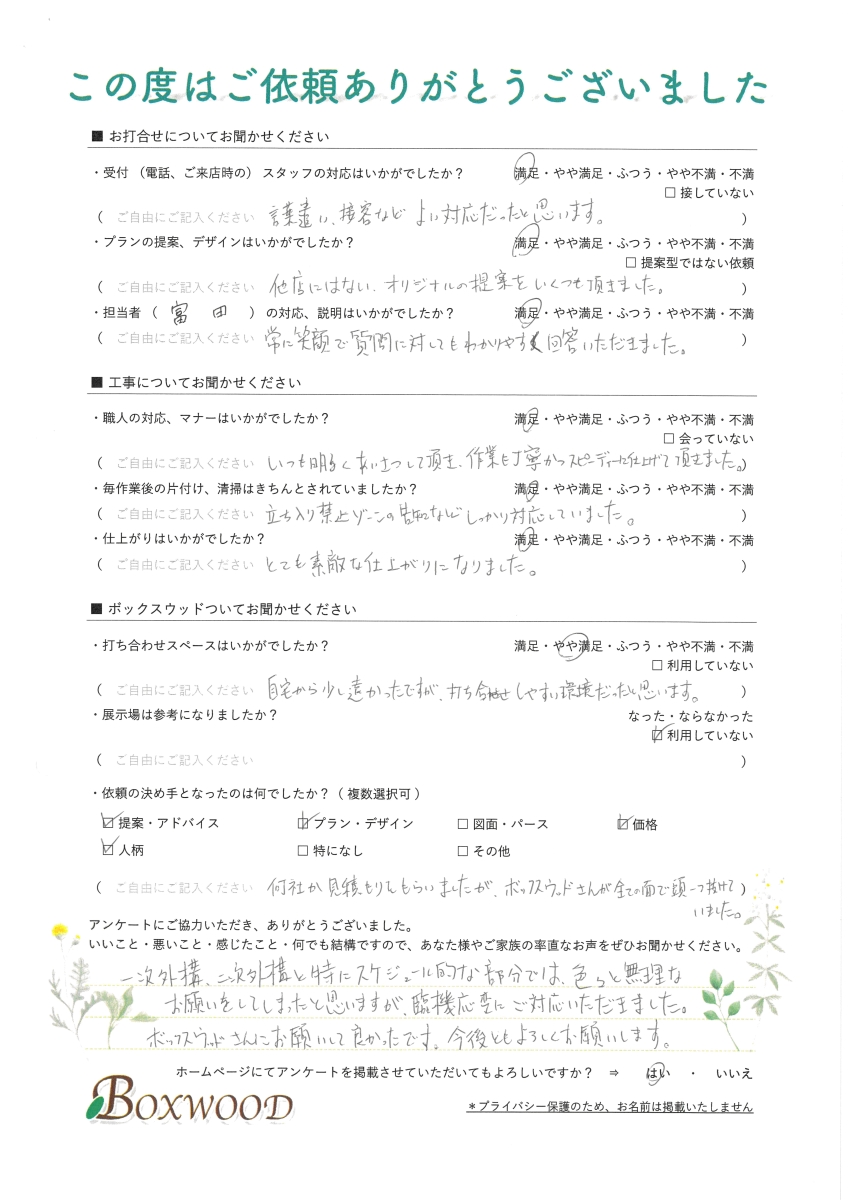 この度はご依頼ありがとうございました
■ お打合せについてお聞かせください
・受付（電話、ご来店時の）スタッフの対応はいかがでしたか？ 満足・やや満足・ふつう・やや不満・不満
□ 接していない
（ ご自由にご記入ください 言葉遣い、接客など よい対応だったと思います。 ）
・プランの提案、デザインはいかがでしたか？ 満足・やや満足・ふつう・やや不満・不満
□ 提案型ではない依頼
（ ご自由にご記入ください 他店にはない、オリジナルの提案をいくつも頂きました。 ）
・担当者（ 富田 ）の対応、説明はいかがでしたか？ 満足・やや満足・ふつう・やや不満・不満
（ ご自由にご記入ください 常に笑顔で質問に対してもわかりやすく回答いただきました。 ）
■ 工事についてお聞かせください
・職人の対応、マナーはいかがでしたか？ 満足・やや満足・ふつう・やや不満・不満
□ 会っていない
（ ご自由にご記入ください いつも明るくあいさつして頂き、作業も丁寧かつスピーディーに仕上げて頂きました。）
・毎作業後の片付け、清掃はきちんとされていましたか？ 満足・やや満足・ふつう・やや不満・不満
（ ご自由にご記入ください 立ち入り禁止ゾーンの告知などしっかり対応していました。 ）
・仕上がりはいかがでしたか？ 満足・やや満足・ふつう・やや不満・不満
（ ご自由にご記入ください とても素敵な仕上がりになりました。 ）
■ ボックスウッドついてお聞かせください
・打ち合わせスペースはいかがでしたか？ 満足・やや満足・ふつう・やや不満・不満
□ 利用していない
（ ご自由にご記入ください 自宅から少し遠かったですが、打ち合わせしやすい環境だったと思います。 ）
・展示場は参考になりましたか？ なった・ならなかった
☑ 利用していない
（ ご自由にご記入ください ）
・依頼の決め手となったのは何でしたか？（ 複数選択可 ）
☑ 提案・アドバイス ☑ プラン・デザイン □ 図面・パース ☑ 価格
☑ 人柄 □ 特になし □ その他
（ ご自由にご記入ください 何社か見積もりしてもらいましたが、ボックスウッドさんが全ての面で頭一つ抜けて ）
いました。
アンケートにご協力いただき、ありがとうございました。
いいこと・悪いこと・感じたこと・何でも結構ですので、あなた様やご家族の率直なお声をぜひお聞かせください。
一次外構、二次外構と特にスケジュール的な部分では、色々と無理な
お願いをしてしまったと思いますが、臨機応変にご対応いただきました。
ボックスウッドさんにお願いして良かったです。今後ともよろしくお願いします。
ホームページにてアンケートを掲載させていただいてもよろしいですか？ ⇒ はい ・ いいえ
BOXWOOD
＊プライバシー保護のため、お名前は掲載いたしません